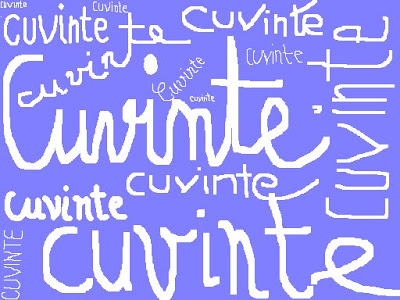 cuvinte
cuvinte
cuvinte
cuvinte
cuvinte
cuvinte
Cuvinte
cuvinte
Cuvinte
cuvinte
cuvinte
cuvinte
CUVINTE
cuvinte